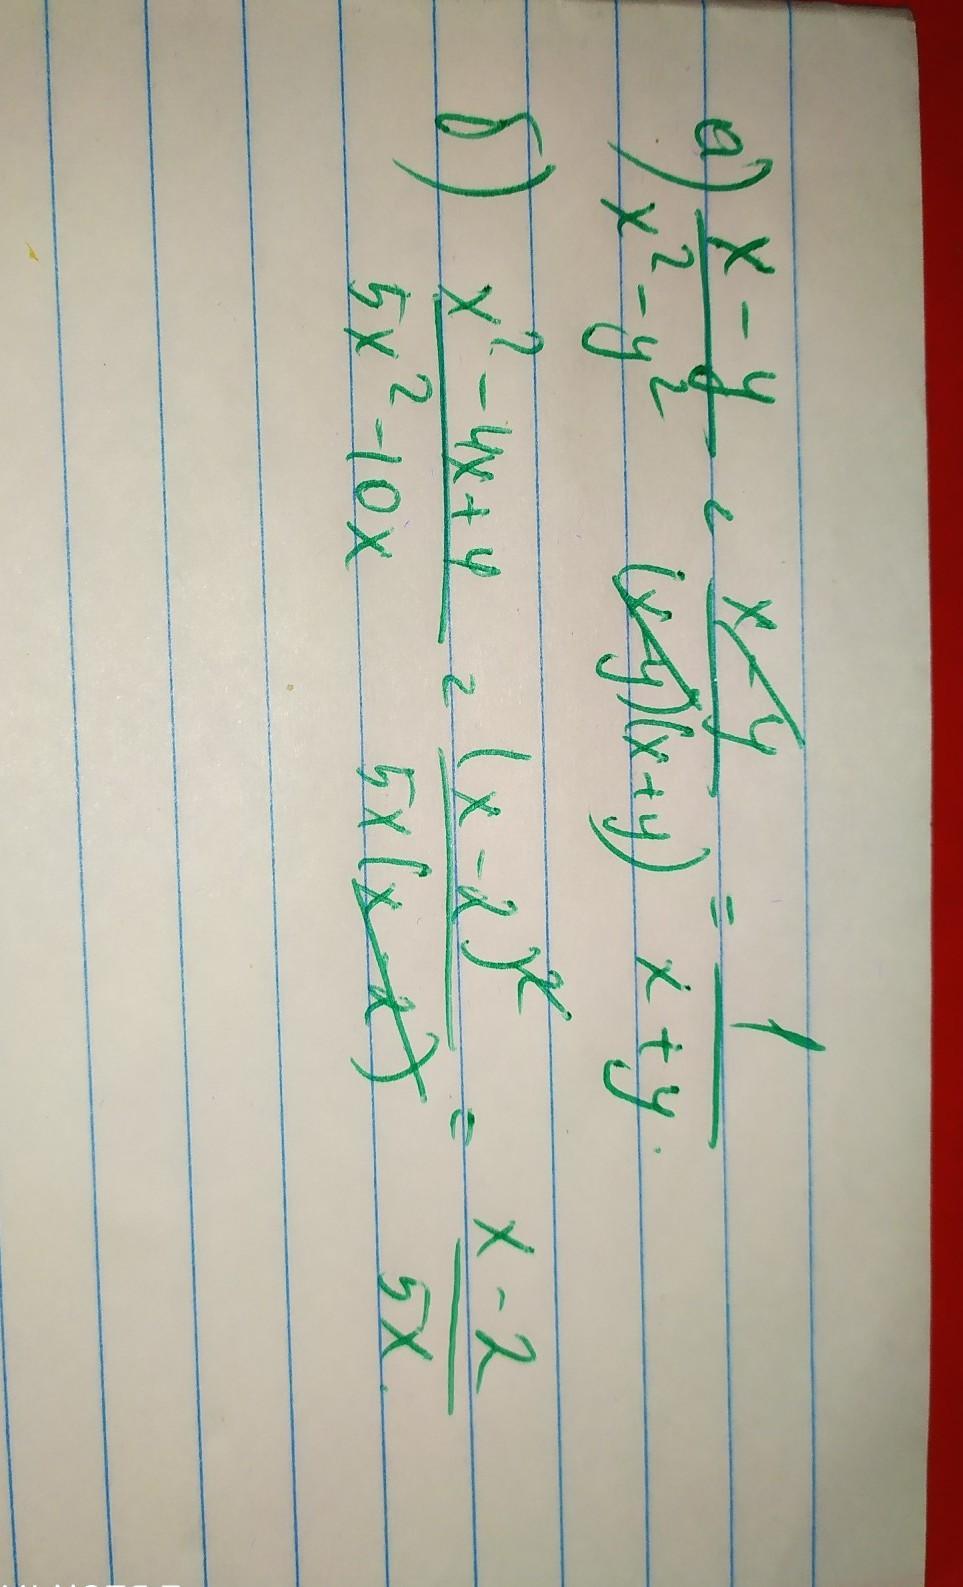 а) x - y / x² - y² = x - y / (x-y)(x+y) = 1 / x + y.
б) x² - 4x + 4 / 5x² - 10x = (x - 2)² / 5x(x - 2) = x - 2 / 5x.